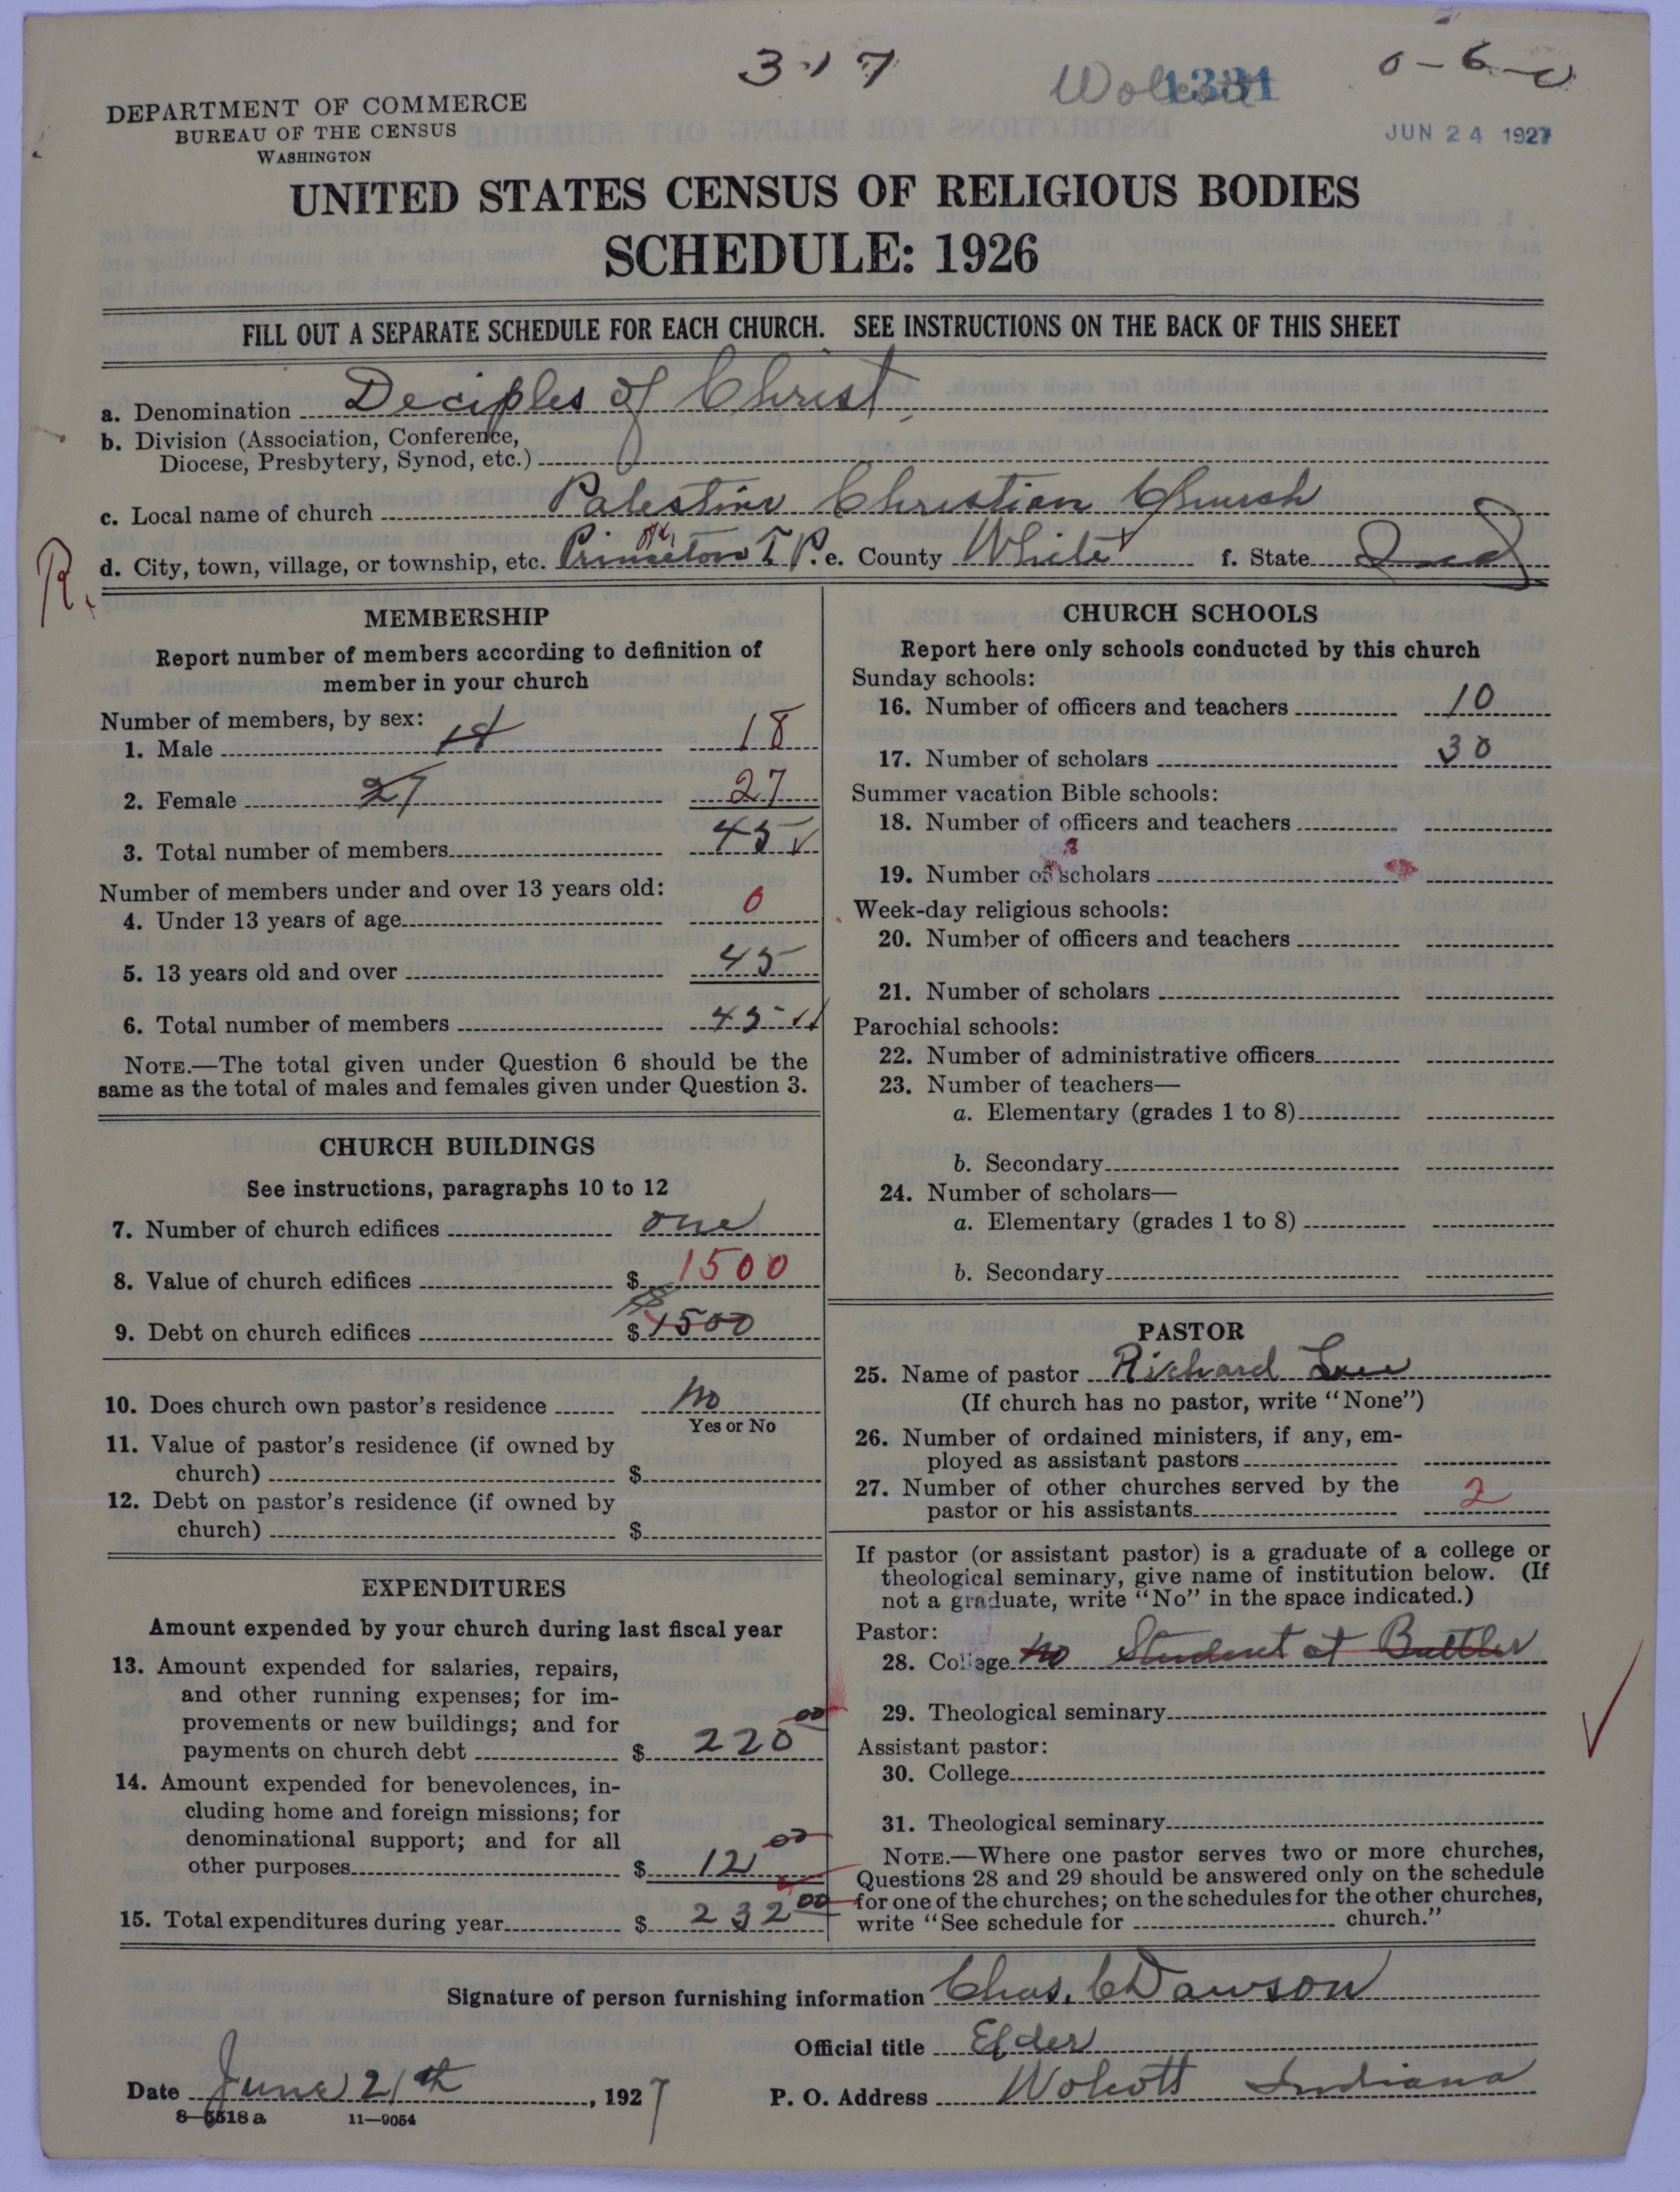 317
Wolcott
1331
0-6-0
DEPARTMENT OF COMMERCE
BUREAU OF THE CENSUS
WASHINGTON
JUN 24 1927
UNITED STATES CENSUS OF RELIGIOUS BODIES
SCHEDULE: 1926
FILL OUT A SEPARATE SCHEDULE FOR EACH CHURCH. SEE INSTRUCTIONS ON THE BACK OF THIS SHEET
a. Denomination Deciples of Christ
b. Division (Association, Conference,
Diocese, Presbytery, Synod, etc.)
c. Local name of church Palestine Christian Church
R. d. City, town, village, or township, etc. Princeton T P. e. County White f. State Ind
MEMBERSHIP
Report number of members according to definition of
member in your church
Number of members, by sex:
1. Male 18 18
2. Female 27 27
3. Total number of members 45
Number of members under and over 13 years old:
4. Under 13 years of age 0
5. 13 years old and over 45
6. Total number of members 45
NOTE.—The total given under Question 6 should be the
same as the total of males and females given under Question 3.
CHURCH BUILDINGS
See instructions, paragraphs 10 to 12
7. Number of church edifices one
8. Value of church edifices $ 1500
9. Debt on church edifices $ 1500
10. Does church own pastor's residence No
Yes or No
11. Value of pastor's residence (if owned by
church) $
12. Debt on pastor's residence (if owned by
church) $
EXPENDITURES
Amount expended by your church during last fiscal year
13. Amount expended for salaries, repairs,
and other running expenses; for im-
provements or new buildings; and for
payments on church debt $ 220 00
14. Amount expended for benevolences, in-
cluding home and foreign missions; for
denominational support; and for all
other purposes $ 12 00
15. Total expenditures during year $ 232 00
CHURCH SCHOOLS
Report here only schools conducted by this church
Sunday schools:
16. Number of officers and teachers 10
17. Number of scholars 30
Summer vacation Bible schools:
18. Number of officers and teachers
19. Number of scholars
Week-day religious schools:
20. Number of officers and teachers
21. Number of scholars
Parochial schools:
22. Number of administrative officers
23. Number of teachers—
a. Elementary (grades 1 to 8)
b. Secondary
24. Number of scholars—
a. Elementary (grades 1 to 8)
b. Secondary
PASTOR
25. Name of pastor Richard
(If church has no pastor, write "None")
26. Number of ordained ministers, if any, em-
ployed as assistant pastors
27. Number of other churches served by the
pastor or his assistants 2
If pastor (or assistant pastor) is a graduate of a college or
theological seminary, give name of institution below. (If
not a graduate, write "No" in the space indicated.)
Pastor:
28. College No Student at Buttler
29. Theological seminary
Assistant pastor:
30. College
31. Theological seminary
NOTE.—Where one pastor serves two or more churches,
Questions 28 and 29 should be answered only on the schedule
for one of the churches; on the schedules for the other churches,
write "See schedule for church."
Signature of person furnishing information Chas. C Dawson
Official title Elder
Date June 21th, 1927 P. O. Address Wolcott Indiana
8-5518 a 11—9054